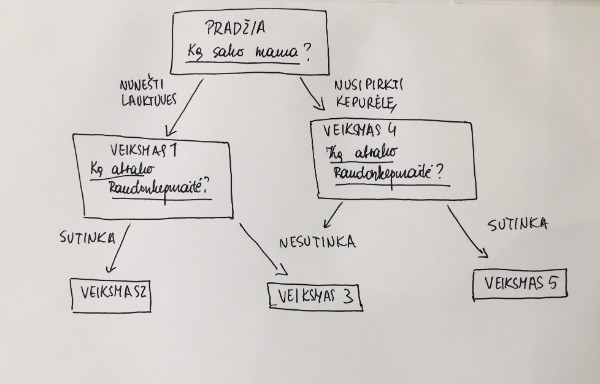 PRADŽIA
Ką sako mama?
NUNEŠTI
LAUKTUVES
NUSIPIRKTI
KEPURĖLĘ
VEIKSMAS 1
Ką atsako
Raudonkepuraitė?
VEIKSMAS 4
Ką atsako
Raudonkepuraitė?
SUTINKA
NESUTINKA
SUTINKA
VEIKSMAS 2
VEIKSMAS 3
VEIKSMAS 5